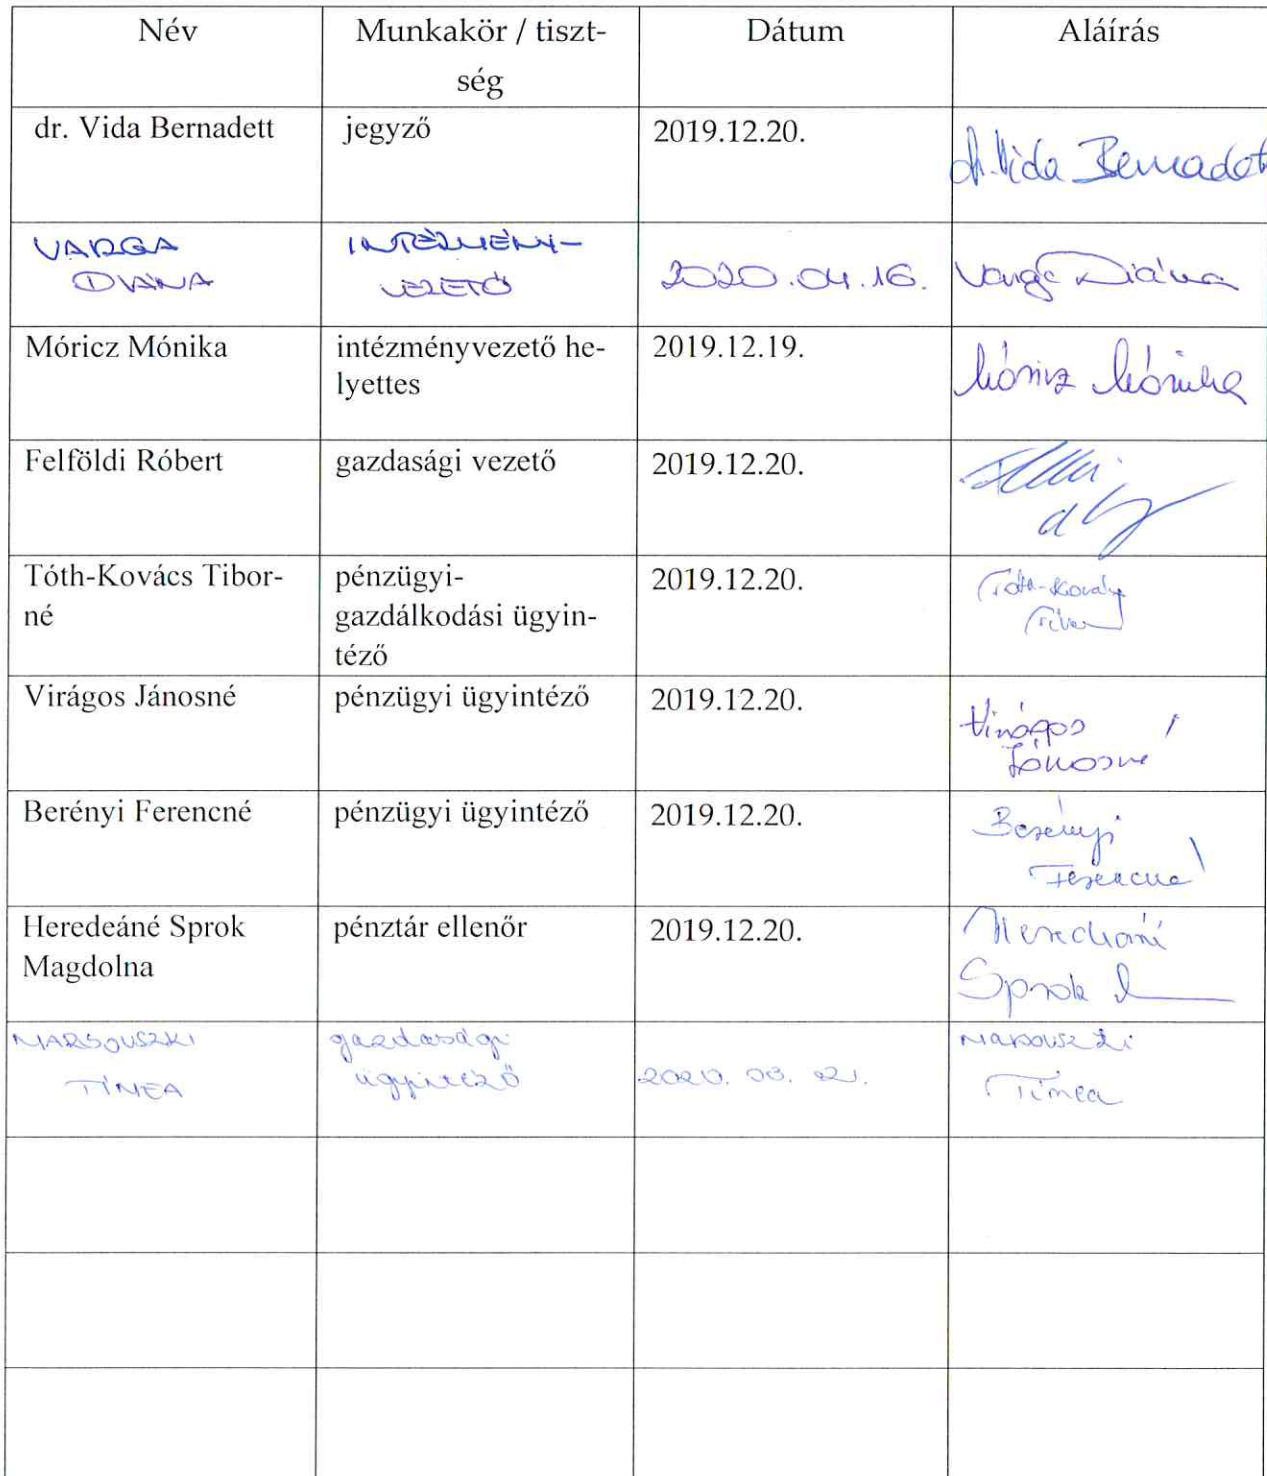 Név
Munkakör / tiszt-
ség
Dátum
Aláírás
dr. Vida Bernadett
jegyző
2019.12.20.
dr. Vida Bernadett
VARGA
DIÁNA
INTÉZMÉNY-
VEZETŐ
2020.04.16.
Varga Diána
Móricz Mónika
intézményvezető he-
lyettes
2019.12.19.
Móricz Mónika
Felföldi Róbert
gazdasági vezető
2019.12.20.
Tóth-Kovács Tibor-
né
pénzügyi-
gazdálkodási ügyin-
téző
2019.12.20.
Tóth-Kovács
Virágos Jánosné
pénzügyi ügyintéző
2019.12.20.
Virágos
Jánosné
Berényi Ferencné
pénzügyi ügyintéző
2019.12.20.
Berényi
Ferencné
Heredeáné Sprok
Magdolna
pénztár ellenőr
2019.12.20.
Sprok
MARSOVSZKI
TÍMEA
gazdasági
ügyintéző
2020.
Tímea